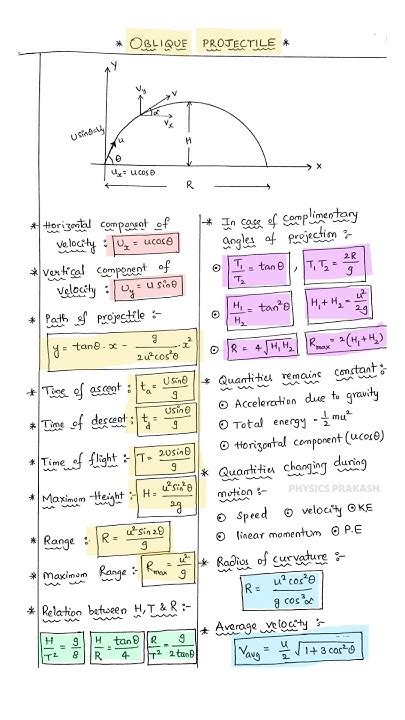 * OBLIQUE PROJECTILE *
Y
Vy
V
α
Vx
u sinθ = uy
u
θ
H
ux = u cosθ
X
R
* Horizontal component of
velocity : Ux = u cosθ
* Vertical component of
velocity : Uy = U sinθ
* Path of projectile :-
y = tanθ . x - g/2u²cos²θ . x²
* Time of ascent : ta = U sinθ/g
* Time of descent : td = U sinθ/g
* Time of flight :- T = 2U sinθ/g
* Maximum Height :- H = u² sin²θ/2g
* Range :- R = u² sin2θ/g
* Maximum Range :- Rmax = u²/g
* Relation between H, T & R :-
H/T² = g/8
H/R = tanθ/4
R/T² = g/2tanθ
* In case of complimentary
angles of projection :-
⊙ T1/T2 = tanθ , T1 T2 = 2R/g
⊙ H1/H2 = tan²θ H1 + H2 = u²/2g
⊙ R = 4√H1 H2 Rmax = 2(H1 + H2)
* Quantities remains constant :-
⊙ Acceleration due to gravity
⊙ Total energy = 1/2 mu²
⊙ Horizontal component (u cosθ)
* Quantities changing during
motion :-
PHYSICS PRAKASH
⊙ Speed ⊙ velocity ⊙ KE
⊙ linear momentum ⊙ P.E
* Radius of curvature :-
R = u² cos²θ/g cos³α
* Average velocity :-
Vavg = u/2 √1 + 3 cos²θ